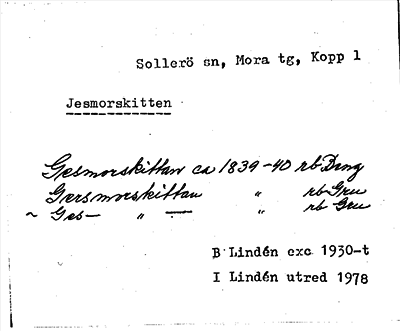 Sollerö sn, Mora tg, Kopp 1
Jesmorskitten
Gesmorskittan ca 1839-40 rb Dmg
Gersmorskittan " rb Gru
~ Ges— " — " rb Gru
B Lindén exc 1930-t
I Lindén utred 1978